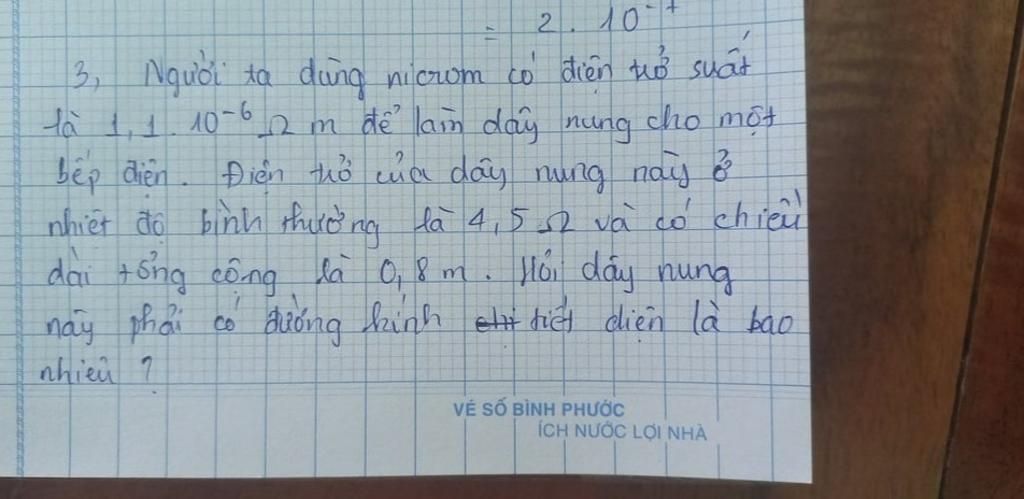 = 2 . 10⁻⁷
3, Người ta dùng nicrom có điện trở suất
là 1,1.10⁻⁶ Ω m để làm dây nung cho một
bếp điện. Điện trở của dây nung này ở
nhiệt độ bình thường là 4,5 Ω và có chiều
dài tổng cộng là 0,8 m. Hỏi dây nung
này phải có đường kính tiết diện là bao
nhiêu ?
VÉ SỐ BÌNH PHƯỚC
ÍCH NƯỚC LỢI NHÀ